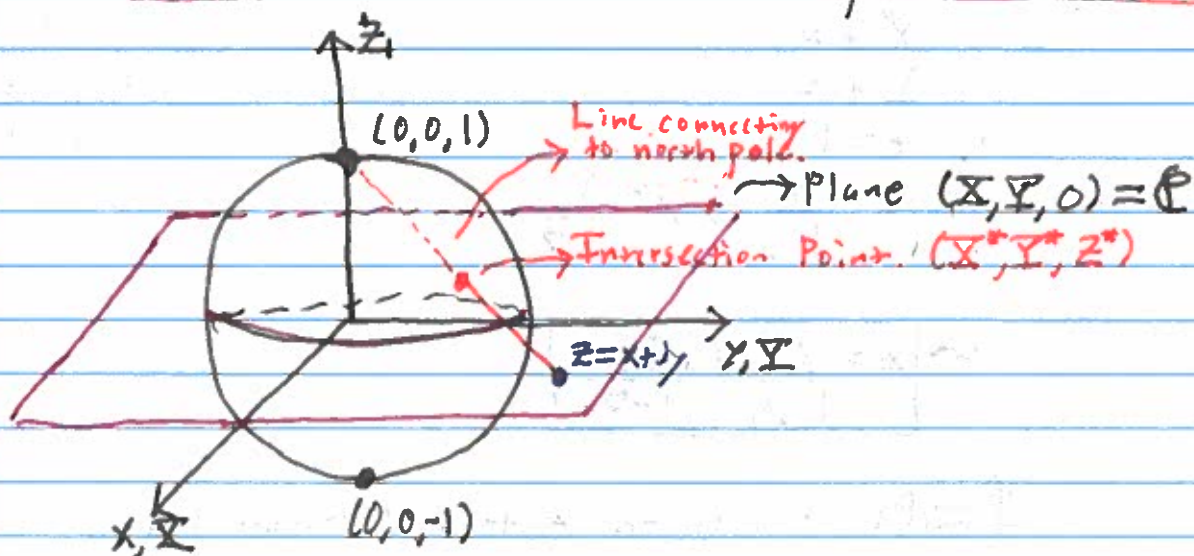 Z
(0,0,1)
Line connecting
to north pole.
Plane (X,Y,0) = ℂ
Intersection Point. (X*,Y*,Z*)
z=x+iy
y,Y
x,X
(0,0,-1)